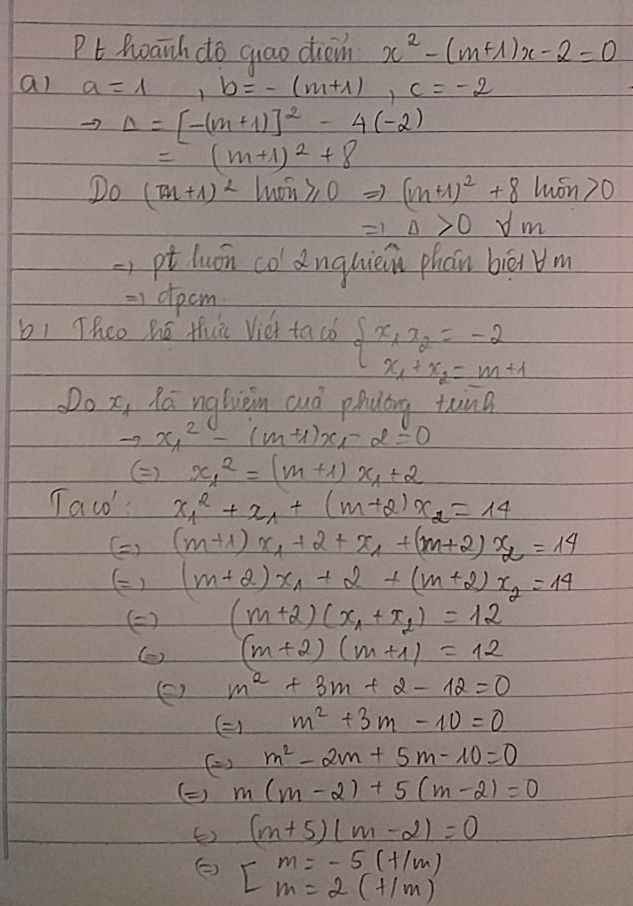 Pt hoành độ giao điểm: x² - (m+1)x - 2 = 0
a) a = 1 , b = - (m+1) , c = -2
→ Δ = [-(m+1)]² - 4(-2)
= (m+1)² + 8
Do (m+1)² luôn ≥ 0 => (m+1)² + 8 luôn > 0
=> Δ > 0 ∀m
=> pt luôn có 2 nghiệm phân biệt ∀m
=> đpcm
b) Theo hệ thức Viét ta có { x₁x₂ = -2
x₁ + x₂ = m+1
Do x₁ là nghiệm của phương trình
→ x₁² - (m+1)x₁ - 2 = 0
(=) x₁² = (m+1)x₁ + 2
Ta có: x₁² + x₁ + (m+2)x₂ = 14
(=) (m+1)x₁ + 2 + x₁ + (m+2)x₂ = 14
(=) (m+2)x₁ + 2 + (m+2)x₂ = 14
(=) (m+2)(x₁ + x₂) = 12
(=) (m+2)(m+1) = 12
(=) m² + 3m + 2 - 12 = 0
(=) m² + 3m - 10 = 0
(=) m² - 2m + 5m - 10 = 0
(=) m(m-2) + 5(m-2) = 0
(=) (m+5)(m-2) = 0
(=) [ m = -5 (t/m)
m = 2 (t/m)